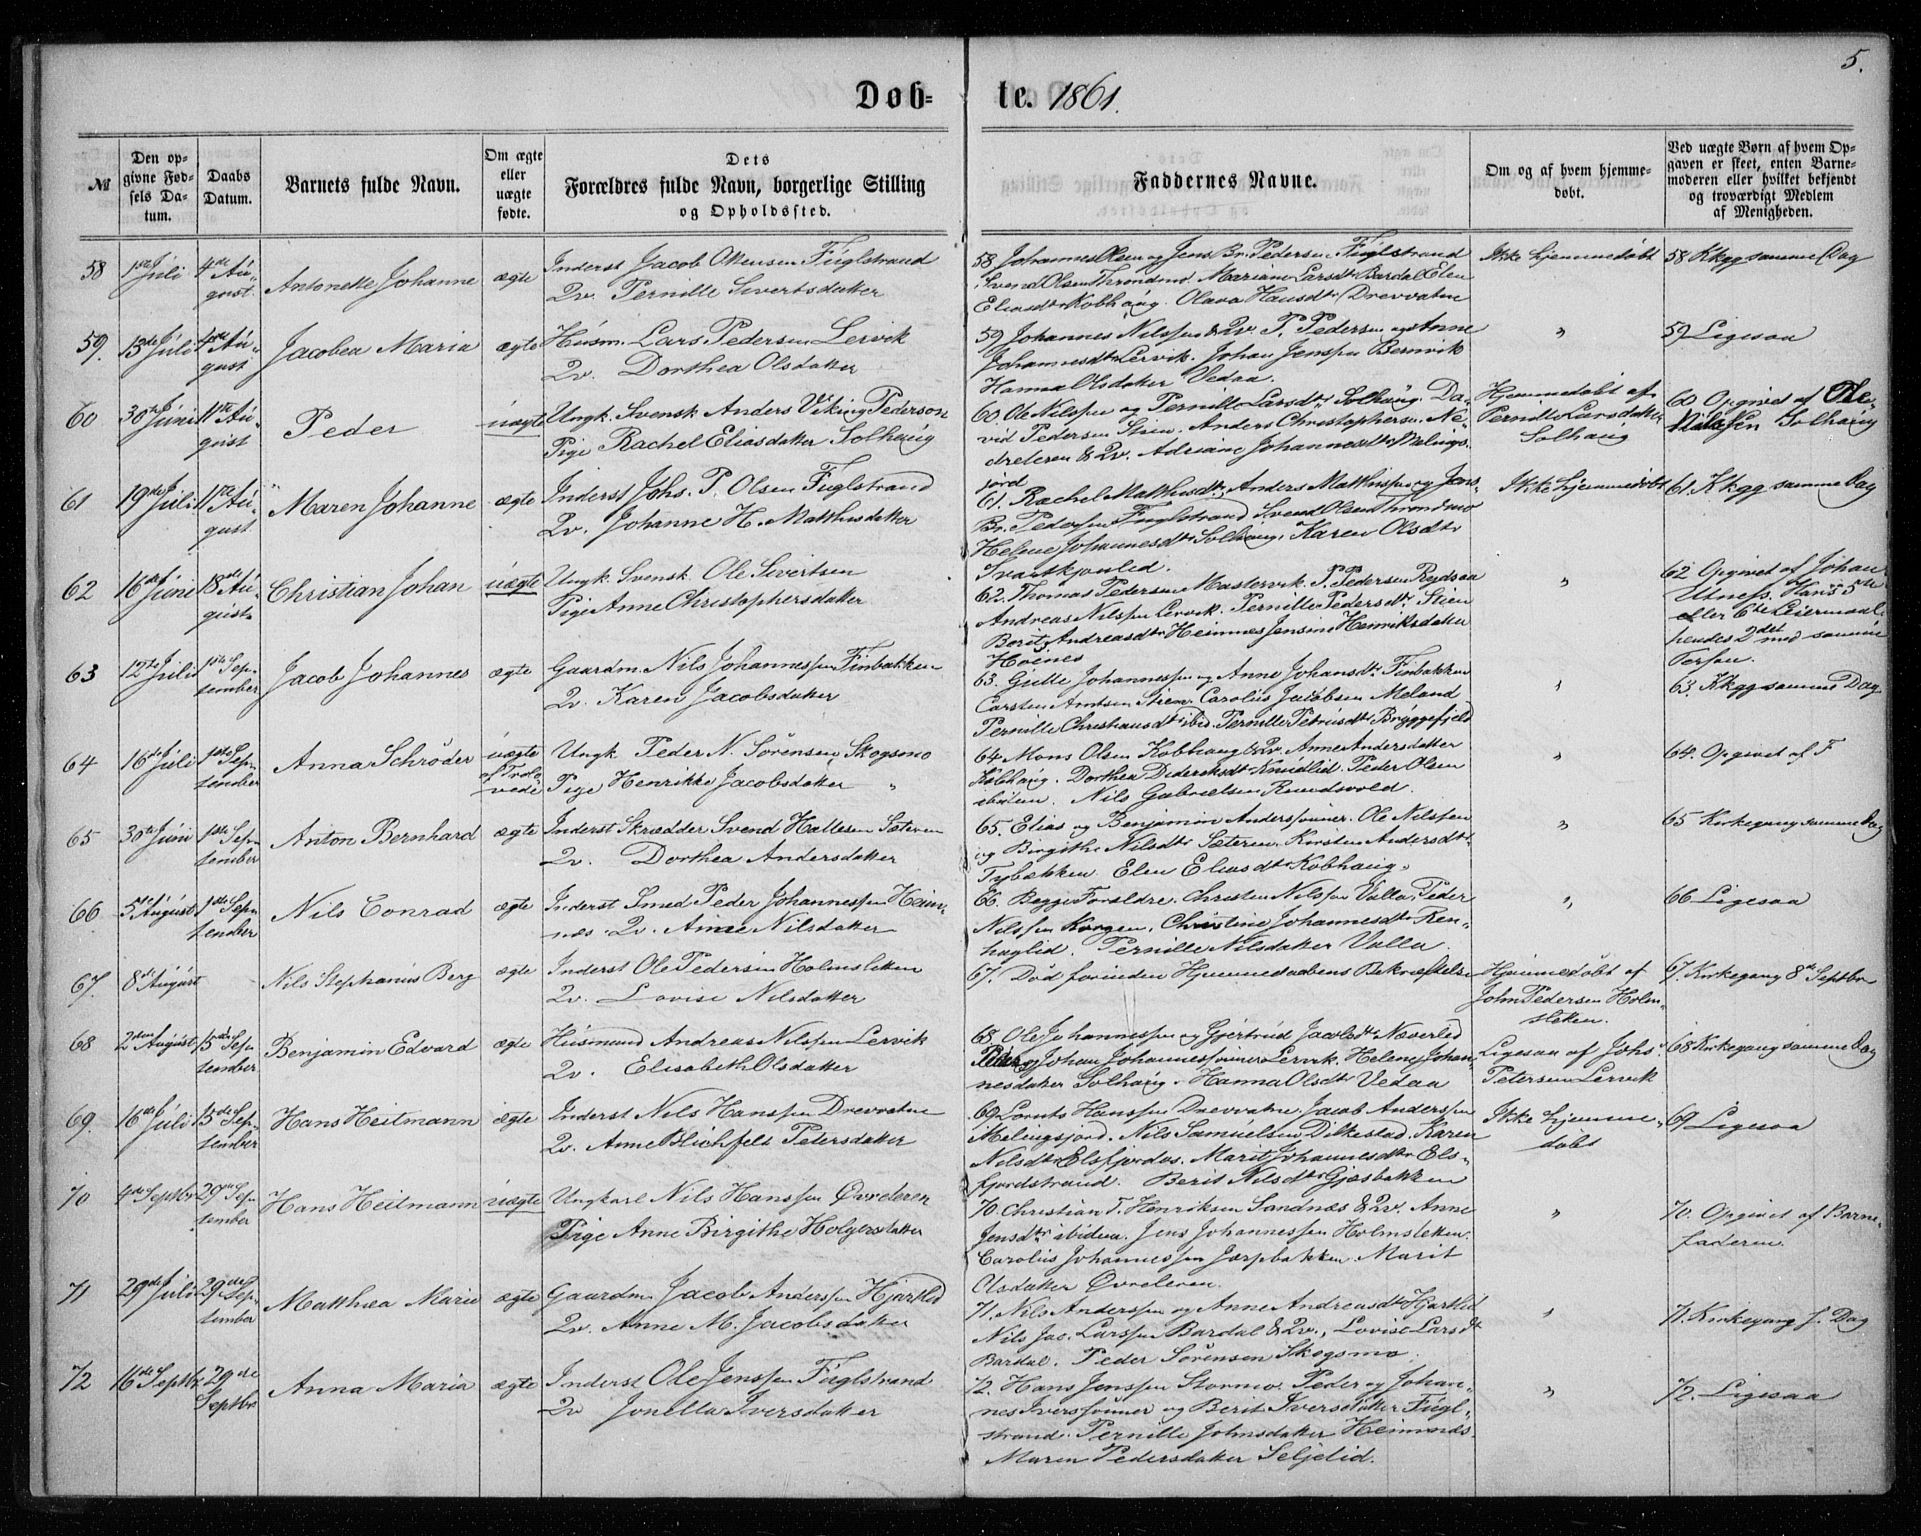 5.
Døb= te. 1861.
№
Den op=
givne Fød=
sels Da=
tum.
Daabs
Datum.
Barnets fulde Navn.
Om ægte
eller
uægte
fødte.
Dets
Forældres fulde Navn, borgerlige Stilling
og Opholdssted.
Faddernes Navne.
Om og af hvem hjemme=
døbt.
Ved uægte Børn af hvem Op=
gaven er skeet, enten Barne=
moderen eller hvilket bekjendt
og troværdigt Medlem
af Menigheden.
58 1ste Juli 4de Au=
gust. Antonette Johanne ægte
Inderst Jacob Fuglstrand
Qv. Pernille Sivertsdatter
58 Johannes Olsen og Jens Br. Pedersen Fuglstrand
Svend Olsen Throndmo Mariane Larsdt. Bardal Elen
Eliasdtr Kobhaug. Olava Hansdtr Drevvatne
Ikke hjemmedøbt
58 Kkgg samme Dag
59. 13de Juli 4de Au=
gust Jacobea Maria ægte
Husm. Lars Pedersen Lervik
Qv. Dorthea Olsdatter
59 Johannes Nilssen & Qv. P. Pedersen og Anne
Johannesdtr Lervik. Johan Jenssen Bernvik
Hanna Olsdatter Vedaa.
"
59 Ligesaa
60 30te Juni 11te Au=
gust Peder uægte
Ungk. Svensk Anders Viking Pederson
Pige Rachel Eliasdatter Solhaug
60. Ole Nilssen og Pernille Larsdtr Solhaug. Da=
vid Pedersen Stien. Anders Christophersen Ne=
dreleren & Qv. Adriane Johannesdtr Melings=
jord
Hjemmedøbt af
Pernille Larsdatter
Solhaug
60 Opgivet af Ole
Nilssen Solhaug
61 19de Juli 11te Au=
gust Maren Johanne ægte
Inderst Johs. P. Olsen Fuglstrand
Qv. Johanne H. Matthisdatter
61. Rachel Matthisdtr. Anders Matthissen og Jens
Br. Pedersen Fuglstrand Svend Olsen Throndmo
Helene Johannesdtr Solhaug. Karen Olsdtr
Svartkjønlid.
Ikke hjemmedøbt
61. Kkgg samme Dag
62 16de Juni 18de Au=
gust. Christian Johan uægte
Ungk. Svensk Ole Sivertsen
Pige Anne Christophersdatter
62. Thomas Pedersen Mastervik. P. Pedersen Reydsaa
Andreas Nilssen Lervik. Pernille Pedersdtr. Stien
Berit Andreasdtr Heimnes Jensine Henriksdatter
Høenes
"
62 Opgivet af Johan
Utness. Hans 5te
eller 6te Leiermaal
hendes 2det med samme
Person.
63 12te Juli 1ste Sep=
tember Jacob Johannes ægte
Gaardm. Nils Johannessen Finbakken
Qv. Karen Jacobsdatter
63. Gulle Johannessen og Anne Johansdtr Finbakken
Carsten Arntsen Stien Carolius Jacobsen Meland
Pernille Christiansdtr ibid. Pernille Petrusdtr Bryggefjeld
"
63. Kkgg samme Dag
64 16de Juli 1ste Sep=
tember Anna Schrøder uægte
af Trolo=
vede
Ungk. Peder N. Sørensen Skogsmo
Pige Henrikke Jacobsdatter "
64 Mons Olsen Kobhaug & Qv. Anne Andersdatter
Kobhaug. Dorthea Dideriksdtr Knudlid. Peder Olsen
ibidem. Nils Gabrielsen Rundvold.
"
64. Opgivet af F
65 30te Juni 1ste Sep=
tember Anton Bernhard ægte
Inderst Skrædder Svend Hallesen Sæteren
Qv. Dorthea Andersdatter
65. Elias og Benjamin Anderssønner. Ole Nilssen
og Birgithe Nilsdtr Sæteren. Kirsten Andersdtr
Tybækken Elen Eliasdtr Kobhaug.
"
65 Kirkegang samme Dag
66 5te August 1ste Sep=
tember Nils Conrad ægte
Inderst Smed Peder Johannessen Heim=
næs. Qv. Anne Nilsdatter
66. Begge Forældre. Christen Nilssen Valla, Peder
Nilssen Korgen, Christine Johannesdtr Ren=
haglid. Pernille Nilsdatter Valla.
"
66. Ligesaa
67. 8de August Nils Stephanus Berg ægte
Inderst Ole Pedersen Holmsletten
Qv. Lovise Nilsdatter
67. Død forinden Hjemmedaabens Bekræftelse
Hjemmedøbt af
John Pedersen Holm=
sletten.
67. Kirkegang 8de Septbr
68 2den August 15de Sep=
tember Benjamin Edvard ægte
Husmand Andreas Nilssen Lervik
Qv. Elisabeth Olsdatter
68 Ole Johannessen og Gjertrud Jacobsdtr Næverlid
Peder og Johan Johannessønner Lervik. Helene Johan=
nesdatter Solhaug. Hanna Olsdtr Vedaa
Ligesaa af Johs.
Petersen Lervik
68 Kirkegang samme Dag
69. 16de Juli 15de Sep=
tember Hans Heitmann ægte
Inderst Nils Hanssen Drevvatne
Qv. Anne Blichfels Petersdatter
69 Lornts Hanssen Drevvatne. Jacob Anderssen
Melingsjord. Nils Samuelsen Dilkestad. Karen
Nilsdtr Elsfjordos. Marit Johannesdtr Els=
fjordstrand. Berit Nilsdtr Gjæsbakken
Ikke hjemme=
døbt
69 Ligesaa
70 4de Septbr 29de Sep
tember Hans Heitmann uægte
Ungkarl Nils Hanssen Øvreleren
Pige Anne Birgithe Holgersdatter
70 Christian T. Henriksen Sandnæs & Qv. Anne
Jensdtr ibidem. Jens Johannessen Holmsletten.
Carolus Johannessen Jarpbakken. Marit
Olsdatter Øvreleren.
"
70. Opgivet af Barne=
faderen.
71 29de Juli 29de Sep=
tember Matthea Marie ægte
Gaardm. Jacob Anderssen Hjartlid
Qv. Anne M. Jacobsdatter
71. Nils Anderssen og Anne Andreasdtr Hjartlid
Nils Jac. Larssen Bardal & Qv., Lovise Larsdt
Bardal. Peder Sørensen Skogsmo.
"
71. Kirkegang s. Dag
72 16de Septbr 29de
Septbr Anna Maria ægte
Inderst Ole Jenssen Fuglstrand
Qv Jonetta Iversdatter
72. Hans Jenssen Stormo. Peder og Johan=
nes Iverssønner og Berit Iversdatter Fugl=
strand. Pernille Johnsdatter Heimnæs.
Maren Pedersdatter Seljelid.
"
72. Ligesaa